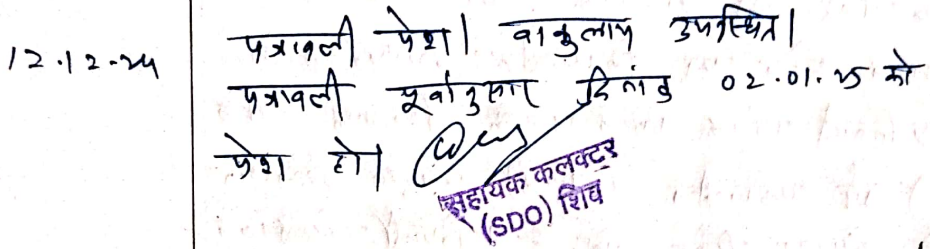 12.12.24
पत्रावली पेश। वाकुलाय उपस्थित।
पत्रावली पूर्वानुसार दिनांक 02.01.25 को
पेश हो।
सहायक कलक्टर
(SDO) शिव